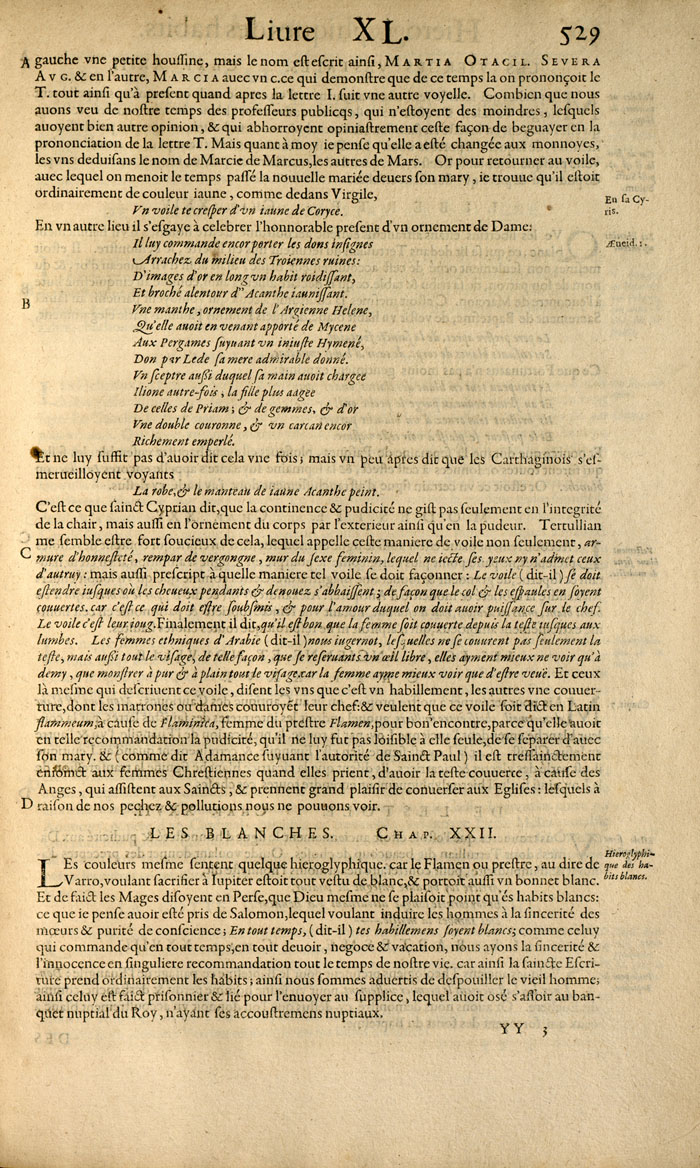 Liure XL. 529
A gauche vne petite houssine, mais le nom est escrit ainsi, MARTIA OTACIL. SEVERA
AVG. & en l'autre, MARCIA auec vn c. ce qui demonstre que de ce temps la on prononçoit le
T. tout ainsi qu'à present quand apres la lettre I. suit vne autre voyelle. Combien que nous
auons veu de nostre temps des professeurs publicqs, qui n'estoyent des moindres, lesquels
auoyent bien autre opinion, & qui abhorroyent opiniastrement ceste façon de beguayer en la
prononciation de la lettre T. Mais quant à moy ie pense qu'elle a esté changée aux monnoyes,
les vns deduisans le nom de Marcie de Marcus, les autres de Mars. Or pour retourner au voile,
auec lequel on menoit le temps passé la nouuelle mariée deuers son mary, ie trouue qu'il estoit
ordinairement de couleur iaune, comme dedans Virgile,
En sa Cy-
ris.
Vn voile te cresper d'vn iaune de Coryce.
En vn autre lieu il s'esgaye à celebrer l'honnorable present d'vn ornement de Dame:
Æneid. 1.
Il luy commande encor porter les dons insignes
Arrachez du milieu des Troiennes ruines:
D'images d'or en long vn habit roidissant,
Et broché alentour d'Acanthe iaunissant.
B
Vne manthe, ornement de l'Argienne Helene,
Qu'elle auoit en venant apporté de Mycene
Aux Pergames suyuant vn iniuste Hymené,
Don par Lede sa mere admirable donné.
Vn sceptre außi duquel sa main auoit chargee
Ilione autre-fois, la fille plus aagee
De celles de Priam; & de gemmes, & d'or
Vne double couronne, & vn carcan encor
Richement emperlé.
Et ne luy suffit pas d'auoir dit cela vne fois; mais vn peu apres dit que les Carthaginois s'es-
merueilloyent voyants
La robe, & le manteau de iaune Acanthe peint.
C'est ce que sainct Cyprian dit, que la continence & pudicité ne gist pas seulement en l'integrité
de la chair, mais aussi en l'ornement du corps par l'exterieur ainsi qu'en la pudeur. Tertullian
me semble estre fort soucieux de cela, lequel appelle ceste maniere de voile non seulement, ar-
C mure d'honnesteté, rempar de vergongne, mur du sexe feminin, lequel ne iecte ses yeux ny n'admet ceux
d'autruy: mais aussi prescript à quelle maniere tel voile se doit façonner: Le voile (dit-il) se doit
estendre iusques où les cheueux pendants & denouez s'abbaissent; de façon que le col & les espaules en soyent
couuertes. car c'est ce qui doit estre soubsmis, & pour l'amour duquel on doit auoir puissance sur le chef.
Le voile c'est leur ioug. Finalement il dit, qu'il est bon que la femme soit couuerte depuis la teste iusques aux
lumbes. Les femmes ethniques d'Arabie (dit-il) nous iugeront, lesquelles ne se couurent pas seulement la
teste, mais außi tout le visage, de telle façon, que se reseruants vn œil libre, elles ayment mieux ne voir qu'à
demy, que monstrer à pur & à plain tout le visage. car la femme ayme mieux voir que d'estre veuë. Et ceux
là mesme qui descriuent ce voile, disent les vns que c'est vn habillement, les autres vne couuer-
ture, dont les matrones ou dames couuroyẽt leur chef: & veulent que ce voile soit dict en Latin
flammeum, à cause de Flaminica, femme du prestre Flamen, pour bon' encontre, parce qu'elle auoit
en telle recommandation la pudicité, qu'il ne luy fut pas loisible à elle seule, de se separer d'auec
son mary. & (comme dit Adamance suyuant l'autorité de Sainct Paul) il est tressainctement
enioinct aux femmes Chrestiennes quand elles prient, d'auoir la teste couuerte, à cause des
Anges, qui assistent aux Saincts, & prennent grand plaisir de conuerser aux Eglises: lesquels à
D raison de nos pechez & pollutions nous ne pouuons voir.
LES BLANCHES. CHAP. XXII.
Hieroglyphi-
que des ha-
bits blancs.
LEs couleurs mesme sentent quelque hieroglyphique. car le Flamen ou prestre, au dire de
Varro, voulant sacrifier à Iupiter estoit tout vestu de blanc, & portoit aussi vn bonnet blanc.
Et de faict les Mages disoyent en Perse, que Dieu mesme ne se plaisoit point qu'és habits blancs:
ce que ie pense auoir esté pris de Salomon, lequel voulant induire les hommes à la sincerité des
mœurs & purité de conscience; En tout temps, (dit-il) tes habillemens soyent blancs; comme celuy
qui commande qu'en tout temps, en tout deuoir, negoce & vacation, nous ayons la sincerité &
l'innocence en singuliere recommandation tout le temps de nostre vie. car ainsi la saincte Escri-
ture prend ordinairement les habits; ainsi nous sommes aduertis de despouiller le vieil homme;
ainsi celuy est faict prisonnier & lié pour l'enuoyer au supplice, lequel auoit osé s'assoir au ban-
quet nuptial du Roy, n'ayant ses accoustremens nuptiaux.
YY 3